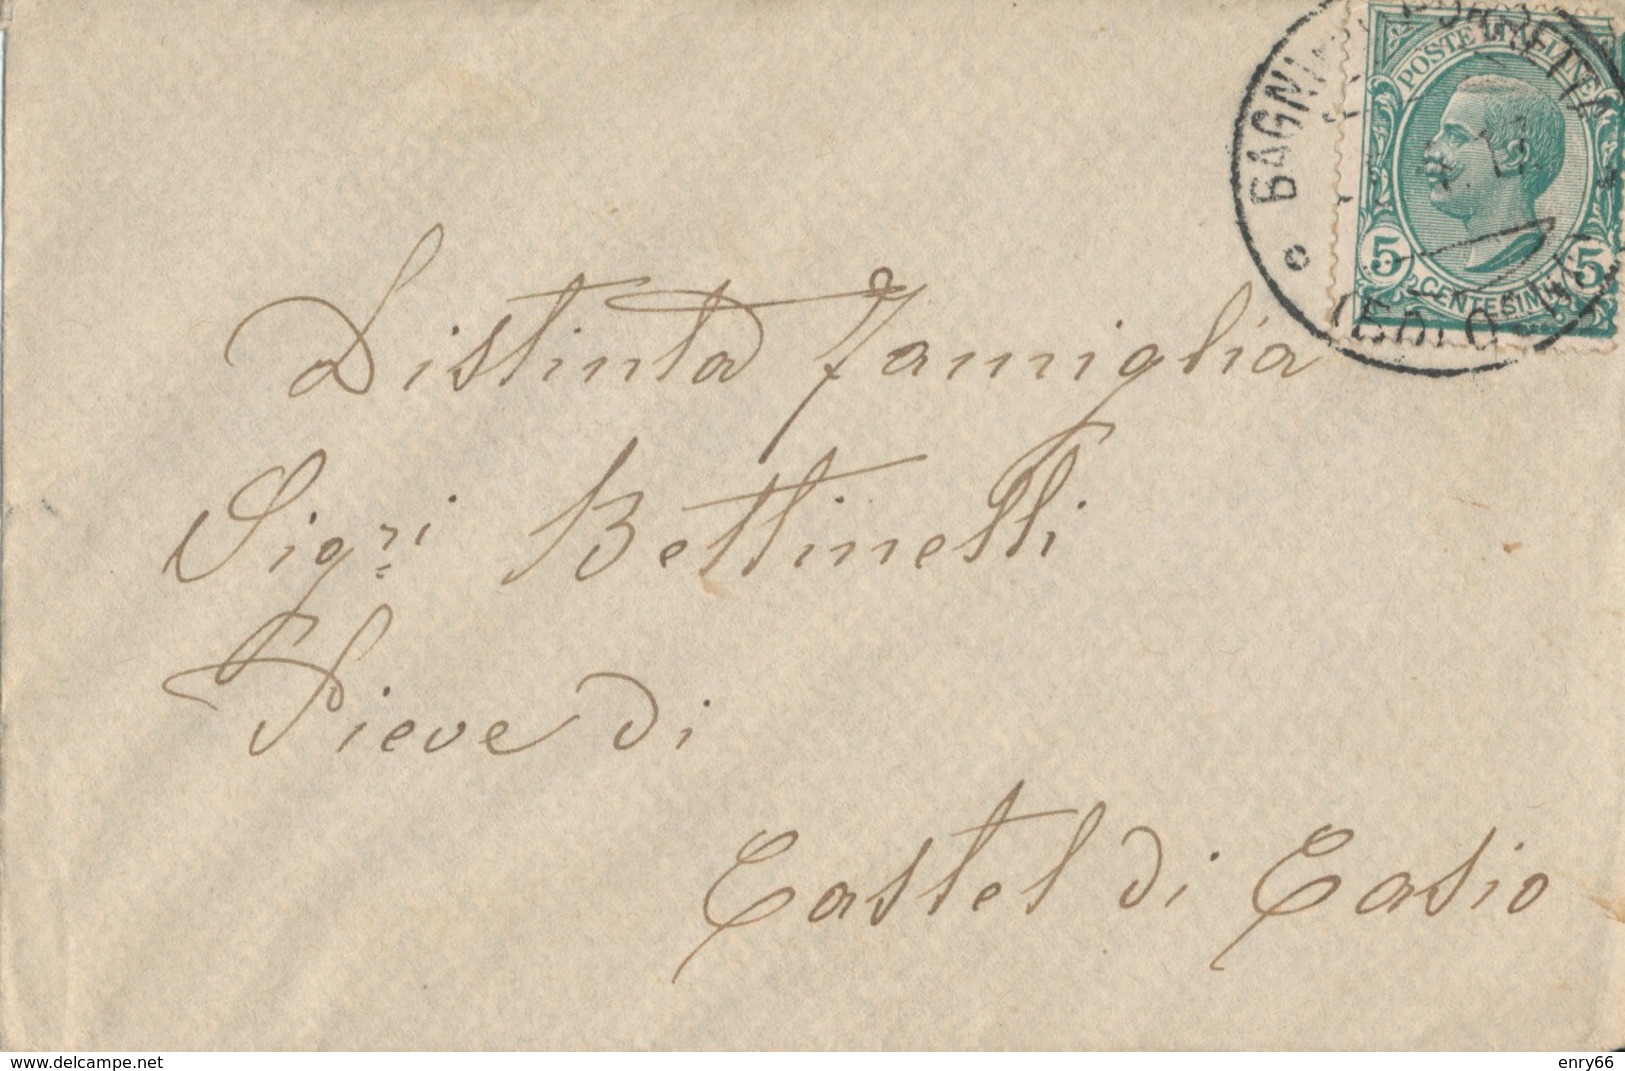 POSTE ITALIANE
5 5
CENTESIMI
BAGNI PORRETTA
Distinta Famiglia
Sig.ri Bettinelli
Pieve di
Castel di Casio
www.delcampe.net
enry66